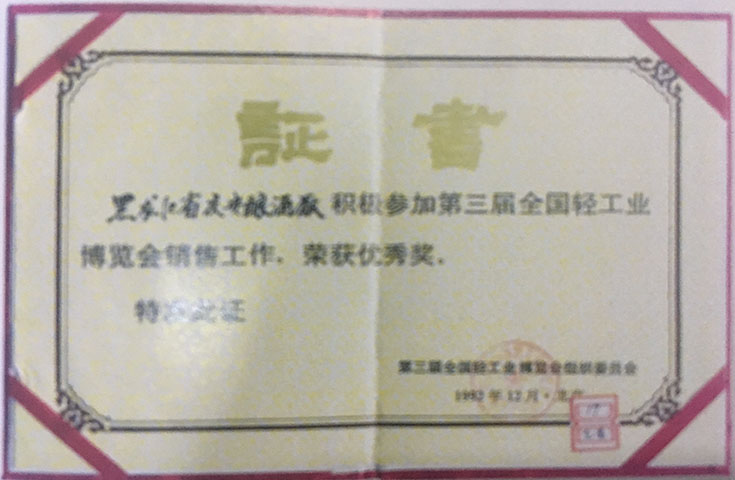 証書
黑龙江省庆安酿酒厰积极参加第三届全国轻工业
博览会销售工作，荣获优秀奖．
特发此证
第三届全国轻工业博览会组织委员会
1992年12月·北京